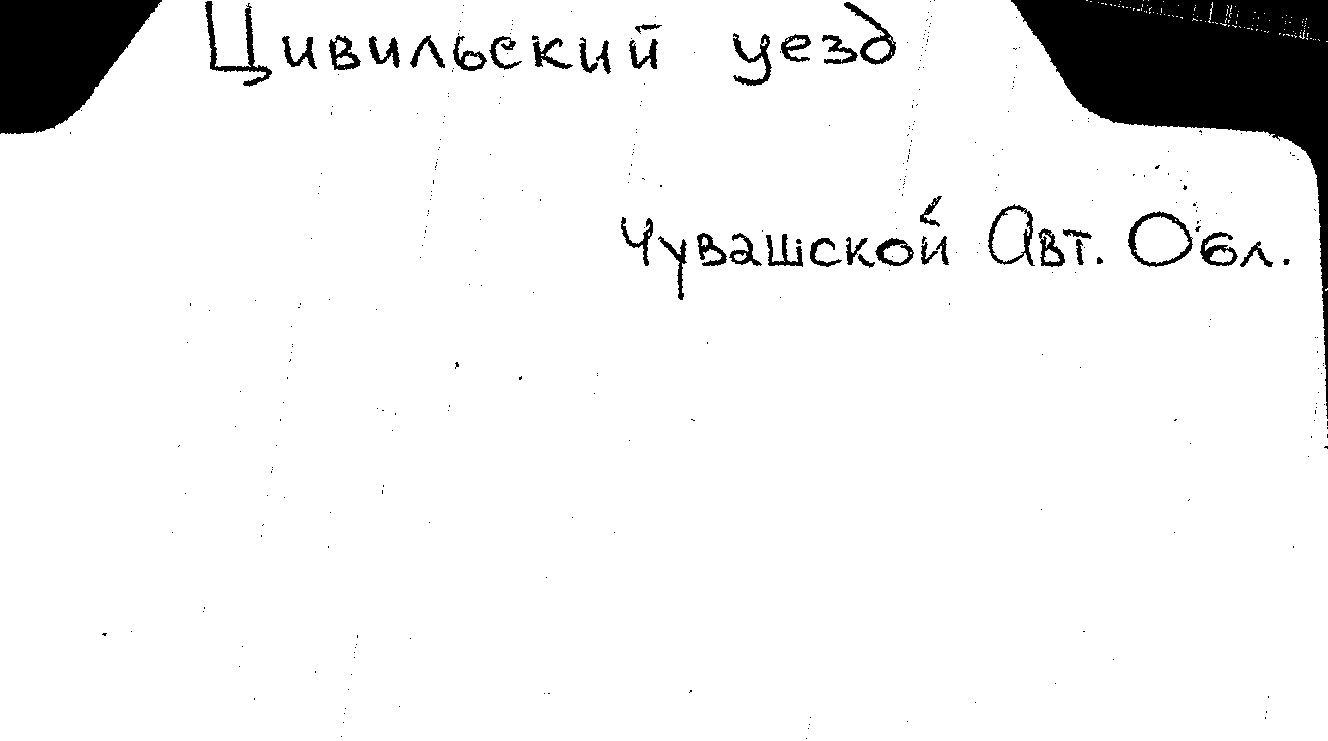 Цивильский уезд
Чувашской Авт. Обл.